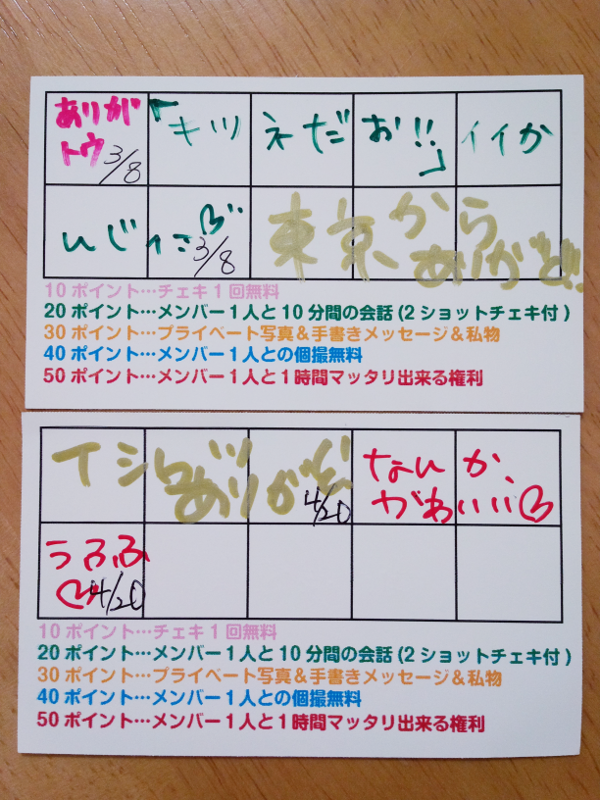 ありが
トウ
3/8
「キツネだお!!」
イイか
んじだ
3/8
東京から
ありがと!!
10ポイント…チェキ1回無料
20ポイント…メンバー1人と10分間の会話(2ショットチェキ付)
30ポイント…プライベート写真&手書きメッセージ&私物
40ポイント…メンバー1人との個撮無料
50ポイント…メンバー1人と1時間マッタリ出来る権利
ありが
4/20
なんか、
かわいい
うふふ
4/20
10ポイント…チェキ1回無料
20ポイント…メンバー1人と10分間の会話(2ショットチェキ付)
30ポイント…プライベート写真&手書きメッセージ&私物
40ポイント…メンバー1人との個撮無料
50ポイント…メンバー1人と1時間マッタリ出来る権利